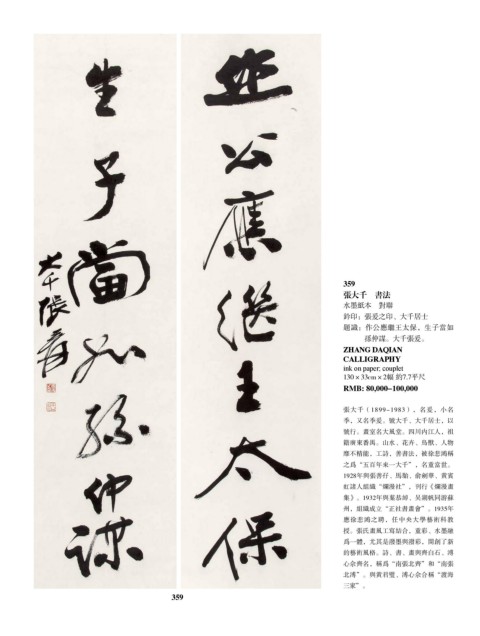 作公應繼王太保
生子當如孫仲謀
大千張爰
359
359
張大千 書法
水墨紙本 對聯
鈐印：張爰之印、大千居士
題識：作公應繼王太保，生子當如
孫仲謀。大千張爰。
ZHANG DAQIAN
CALLIGRAPHY
ink on paper; couplet
130×33cm×2幅 約7.7平尺
RMB: 80,000–100,000
張大千（1899-1983），名爰，小名
季，又名季爰。號大千、大千居士，以
號行。畫室名大風堂。四川內江人，祖
籍廣東番禺。山水、花卉、鳥獸、人物
靡不精能。工詩，善書法，被徐悲鴻稱
之爲“五百年來一大千”，名重當世。
1928年與張善仔、馬駘、俞劍華、黃賓
虹諸人組織“爛漫社”，刊行《爛漫畫
集》。1932年與葉恭綽、吳湖帆同游蘇
州，組織成立“正社書畫會”。1935年
應徐悲鴻之聘，任中央大學藝術科教
授。張氏畫風工寫結合，重彩、水墨融
爲一體，尤其是潑墨與潑彩，開創了新
的藝術風格。詩、書、畫與齊白石、溥
心畬齊名，稱爲“南張北齊”和“南張
北溥”。與黃君璧、溥心畬合稱“渡海
三家”。